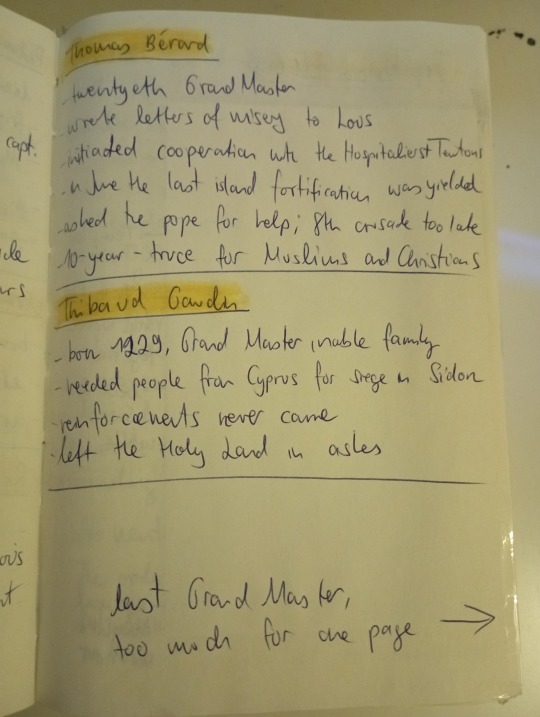 Thomas Bérard
- twentyeth Grand Master
- wrote letters of misery to Louis
- initiaded cooperation with the Hospitalierst Teutons
- in June the last island fortification was yielded
- asked the pope for help; 8th crusade too late
- 10-year-truce for Muslims and Christians
Thibaud Gaudin
- born 1229, Grand Master, noble family
- needed people from Cyprus for siege in Sidon
- reinforcements never came
- left the Holy Land in ashes
last Grand Master,
too much for one page →
capt.